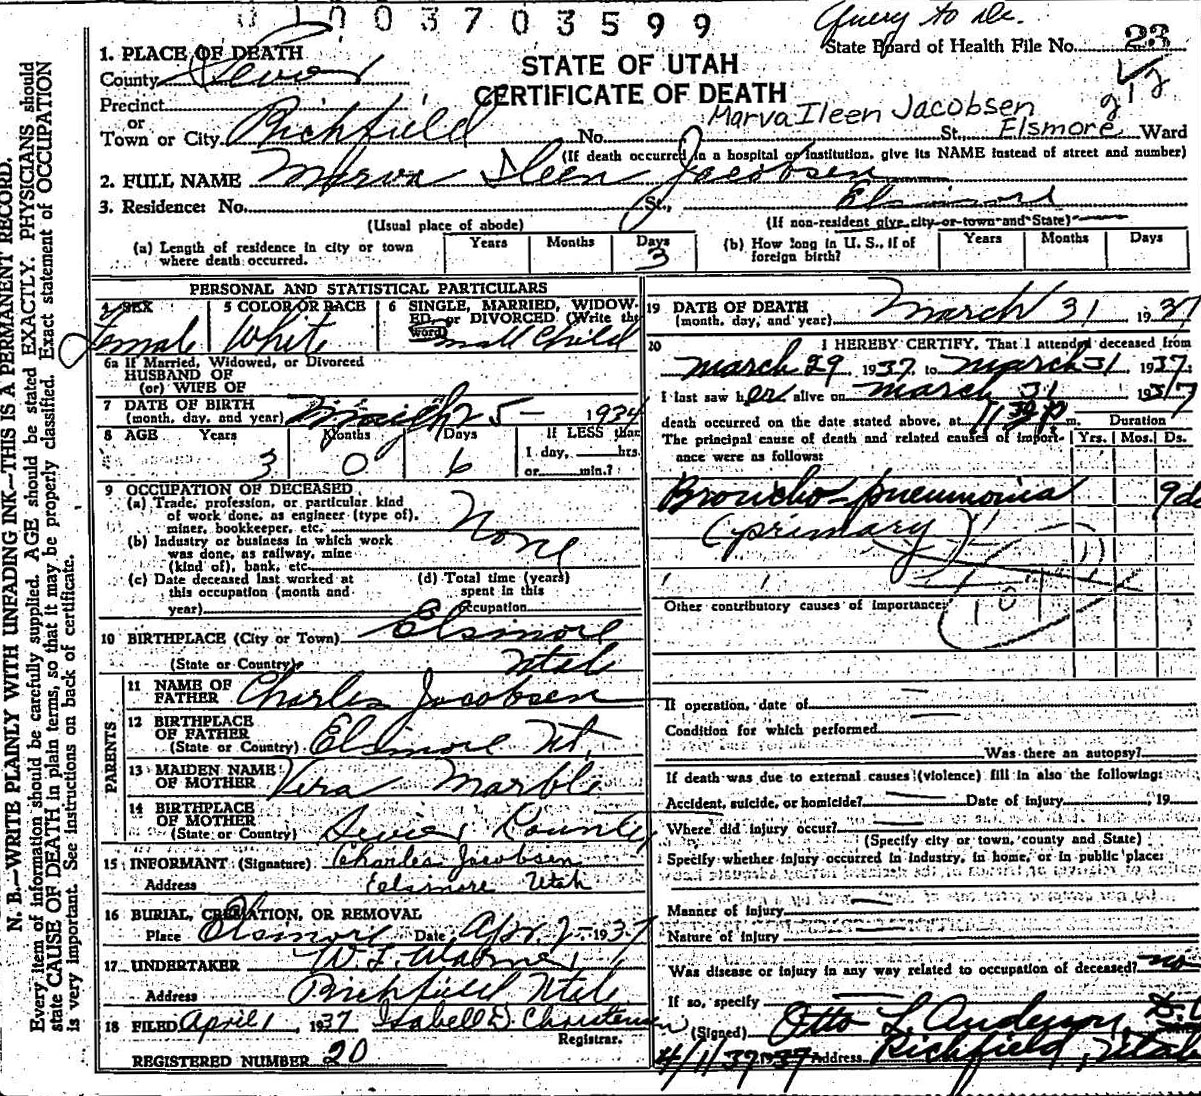 01003703599
Query to Dr.
State Board of Health File No. 23
1. PLACE OF DEATH
County Sevier
STATE OF UTAH
CERTIFICATE OF DEATH
Precinct
or
Town or City Richfield No. St. Elsmore Ward
Marva Ileen Jacobsen
(If death occurred in a hospital or institution, give its NAME instead of street and number)
2. FULL NAME Marva Ileen Jacobsen
3. Residence: No. St., Elsinore
(Usual place of abode) (If non-resident give city or town and State)
(a) Length of residence in city or town where death occurred. Years Months Days 3
(b) How long in U. S., if of foreign birth? Years Months Days
PERSONAL AND STATISTICAL PARTICULARS
4 SEX Female
5 COLOR OR RACE White
6 SINGLE, MARRIED, WIDOWED, or DIVORCED (Write the word) Small Child
6a If Married, Widowed, or Divorced
HUSBAND OF
(or) WIFE OF
7 DATE OF BIRTH
(month, day, and year) March 25 - 1934
8 AGE Years 3 Months 0 Days 6 If LESS than
1 day, hrs.
or min.?
9 OCCUPATION OF DECEASED
(a) Trade, profession, or particular kind
of work done, as engineer (type of),
miner, bookkeeper, etc. None
(b) Industry or business in which work
was done, as railway, mine
(kind of), bank, etc.
(c) Date deceased last worked at
this occupation (month and
year)
(d) Total time (years)
spent in this
occupation
10 BIRTHPLACE (City or Town) Elsinore
(State or Country) Utah
PARENTS
11 NAME OF
FATHER Charles Jacobsen
12 BIRTHPLACE
OF FATHER
(State or Country) Elsinore Ut.
13 MAIDEN NAME
OF MOTHER Vera Marble
14 BIRTHPLACE
OF MOTHER
(State or Country) Sevier County
15 INFORMANT (Signature) Charles Jacobsen
Address Elsinore Utah
16 BURIAL, CREMATION, OR REMOVAL
Place Elsinore Date Apr. 2 - 1937
17 UNDERTAKER
Address Richfield Utah
18 FILED April 1, 1937 Isabell D. Christensen
Registrar.
REGISTERED NUMBER 20
19 DATE OF DEATH
(month, day, and year) March 31 1937
20 I HEREBY CERTIFY, That I attended deceased from
March 29 1937, to March 31 1937;
I last saw her alive on March 31 1937
death occurred on the date stated above, at 11:30 p m. Duration
The principal cause of death and related causes of importance were as follows: Yrs. Mos. Ds.
Broncho-pneumonia 9d
(primary)
107
Other contributory causes of importance:
If operation, date of
Condition for which performed
Was there an autopsy?
If death was due to external causes (violence) fill in also the following:
Accident, suicide, or homicide? Date of injury 19
Where did injury occur?
(Specify city or town, county and State)
Specify whether injury occurred in industry, in home, or in public place:
Manner of injury
Nature of injury
Was disease or injury in any way related to occupation of deceased? no
If so, specify
(Signed) Otto L. Anderson,
4/1/37 1937 Address Richfield, Utah
N. B.—WRITE PLAINLY WITH UNFADING INK—THIS IS A PERMANENT RECORD.
Every item of information should be carefully supplied. AGE should be stated EXACTLY. PHYSICIANS should
state CAUSE OF DEATH in plain terms, so that it may be properly classified. Exact statement of OCCUPATION
is very important. See instructions on back of certificate.